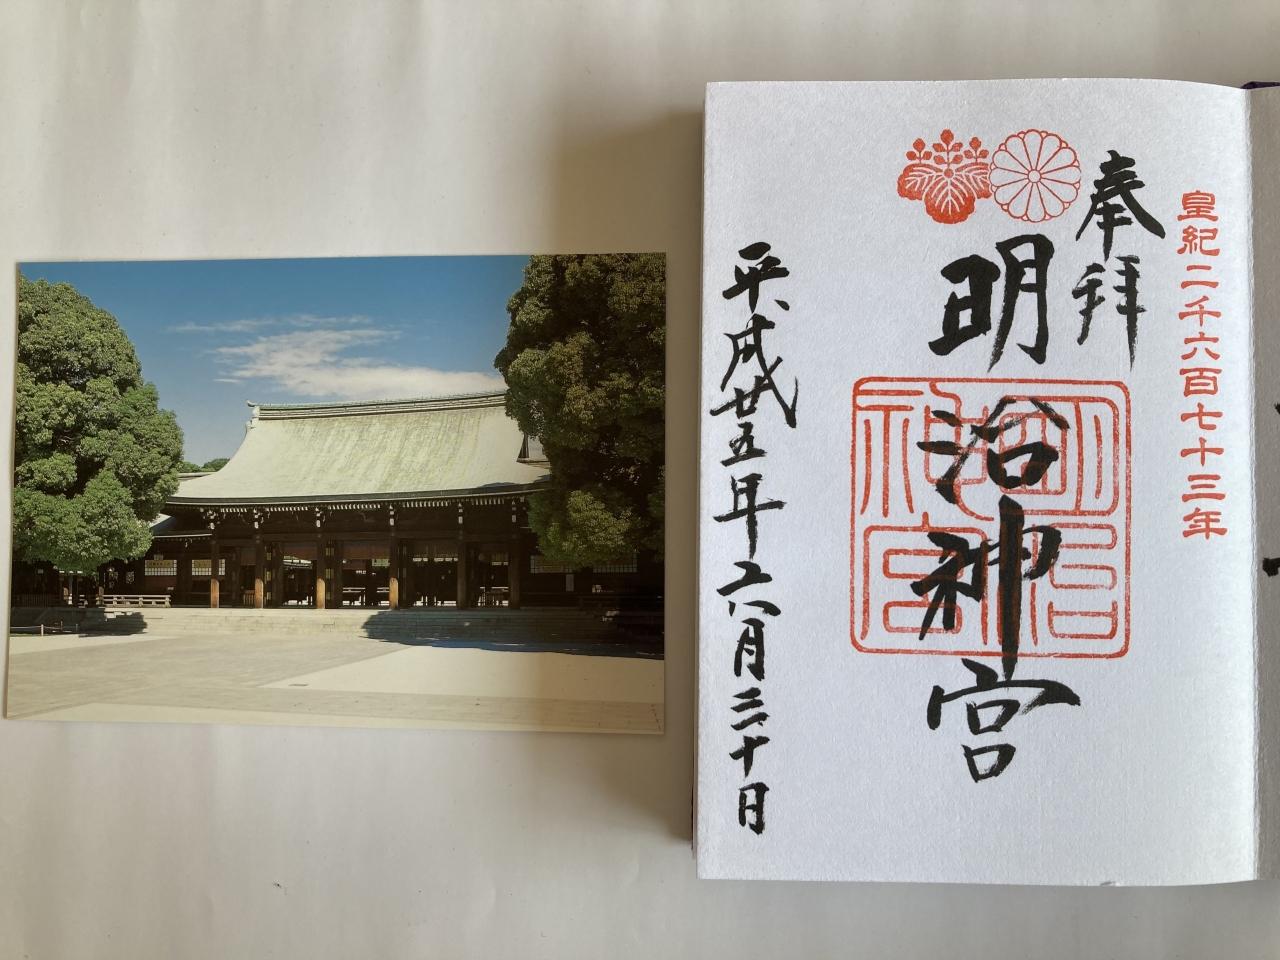 皇紀二千六百七十三年
奉拝
明治神宮
明治神宮
平成廿五年六月三十日